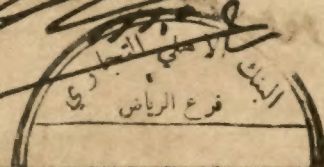 البنك الأهلي التجاري
فرع الرياض